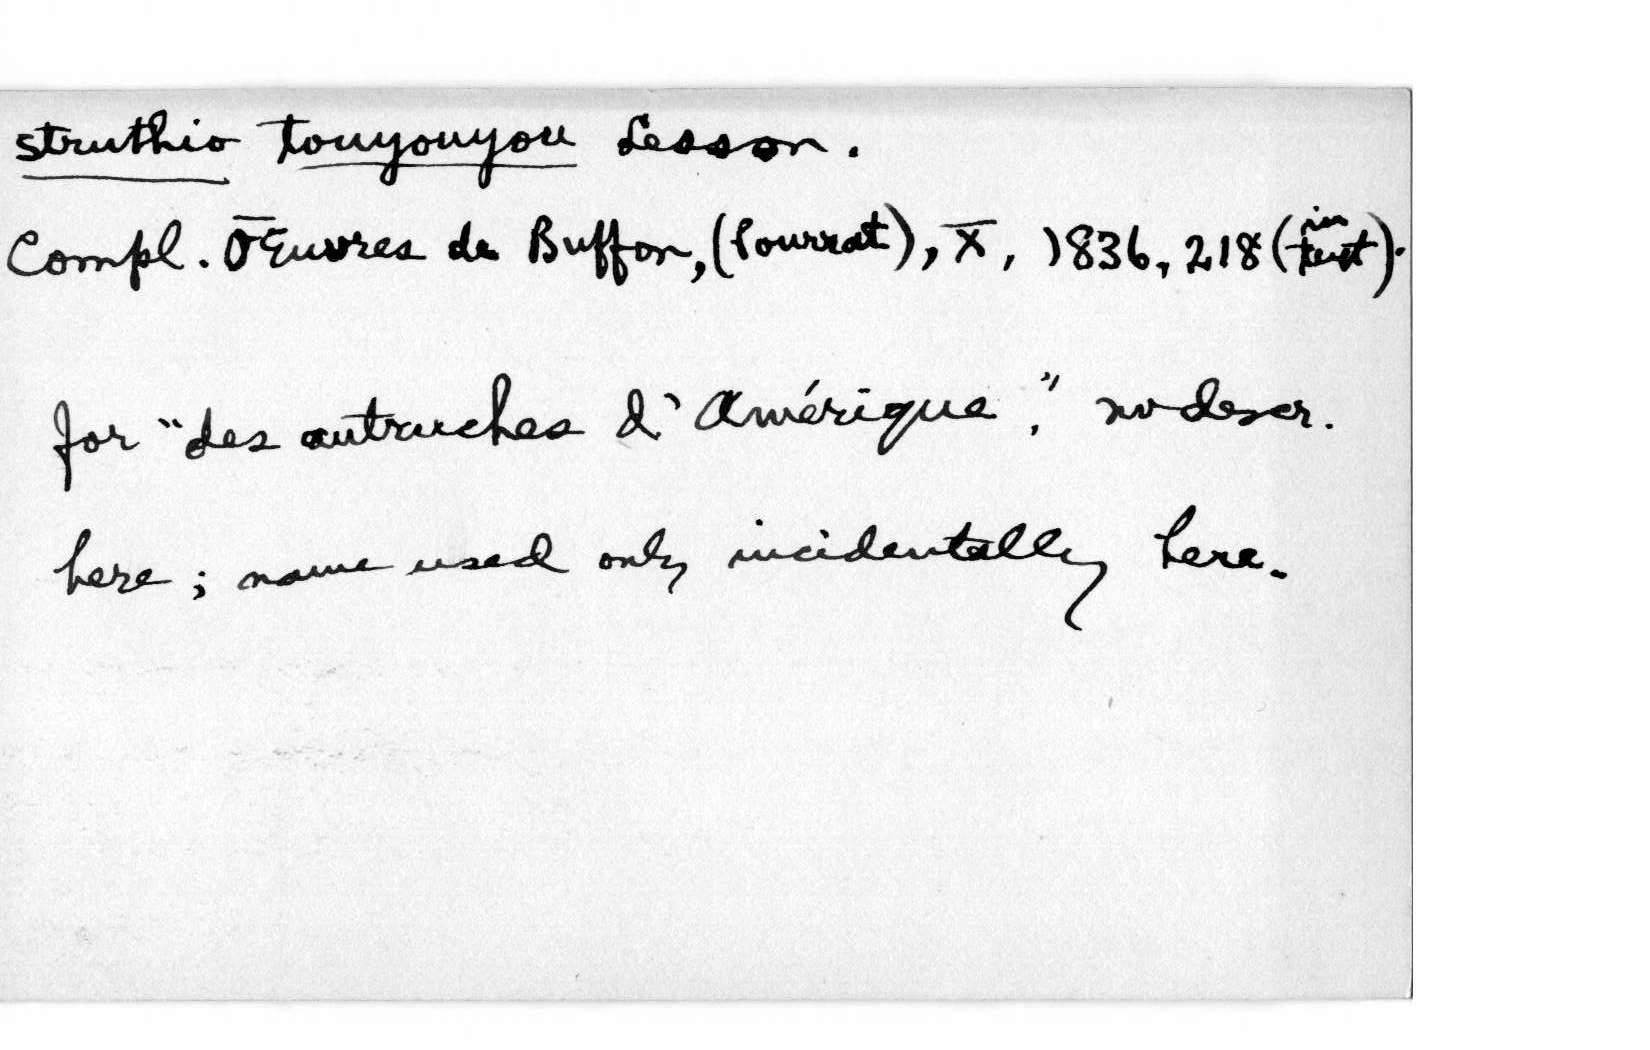 struthio touyouyou Lesson.
Compl. Œuvres de Buffon, (Pourrat), X, 1836, 218 (in text).
for "des autruches d'Amérique," no descr.
here; name used only incidentally here.